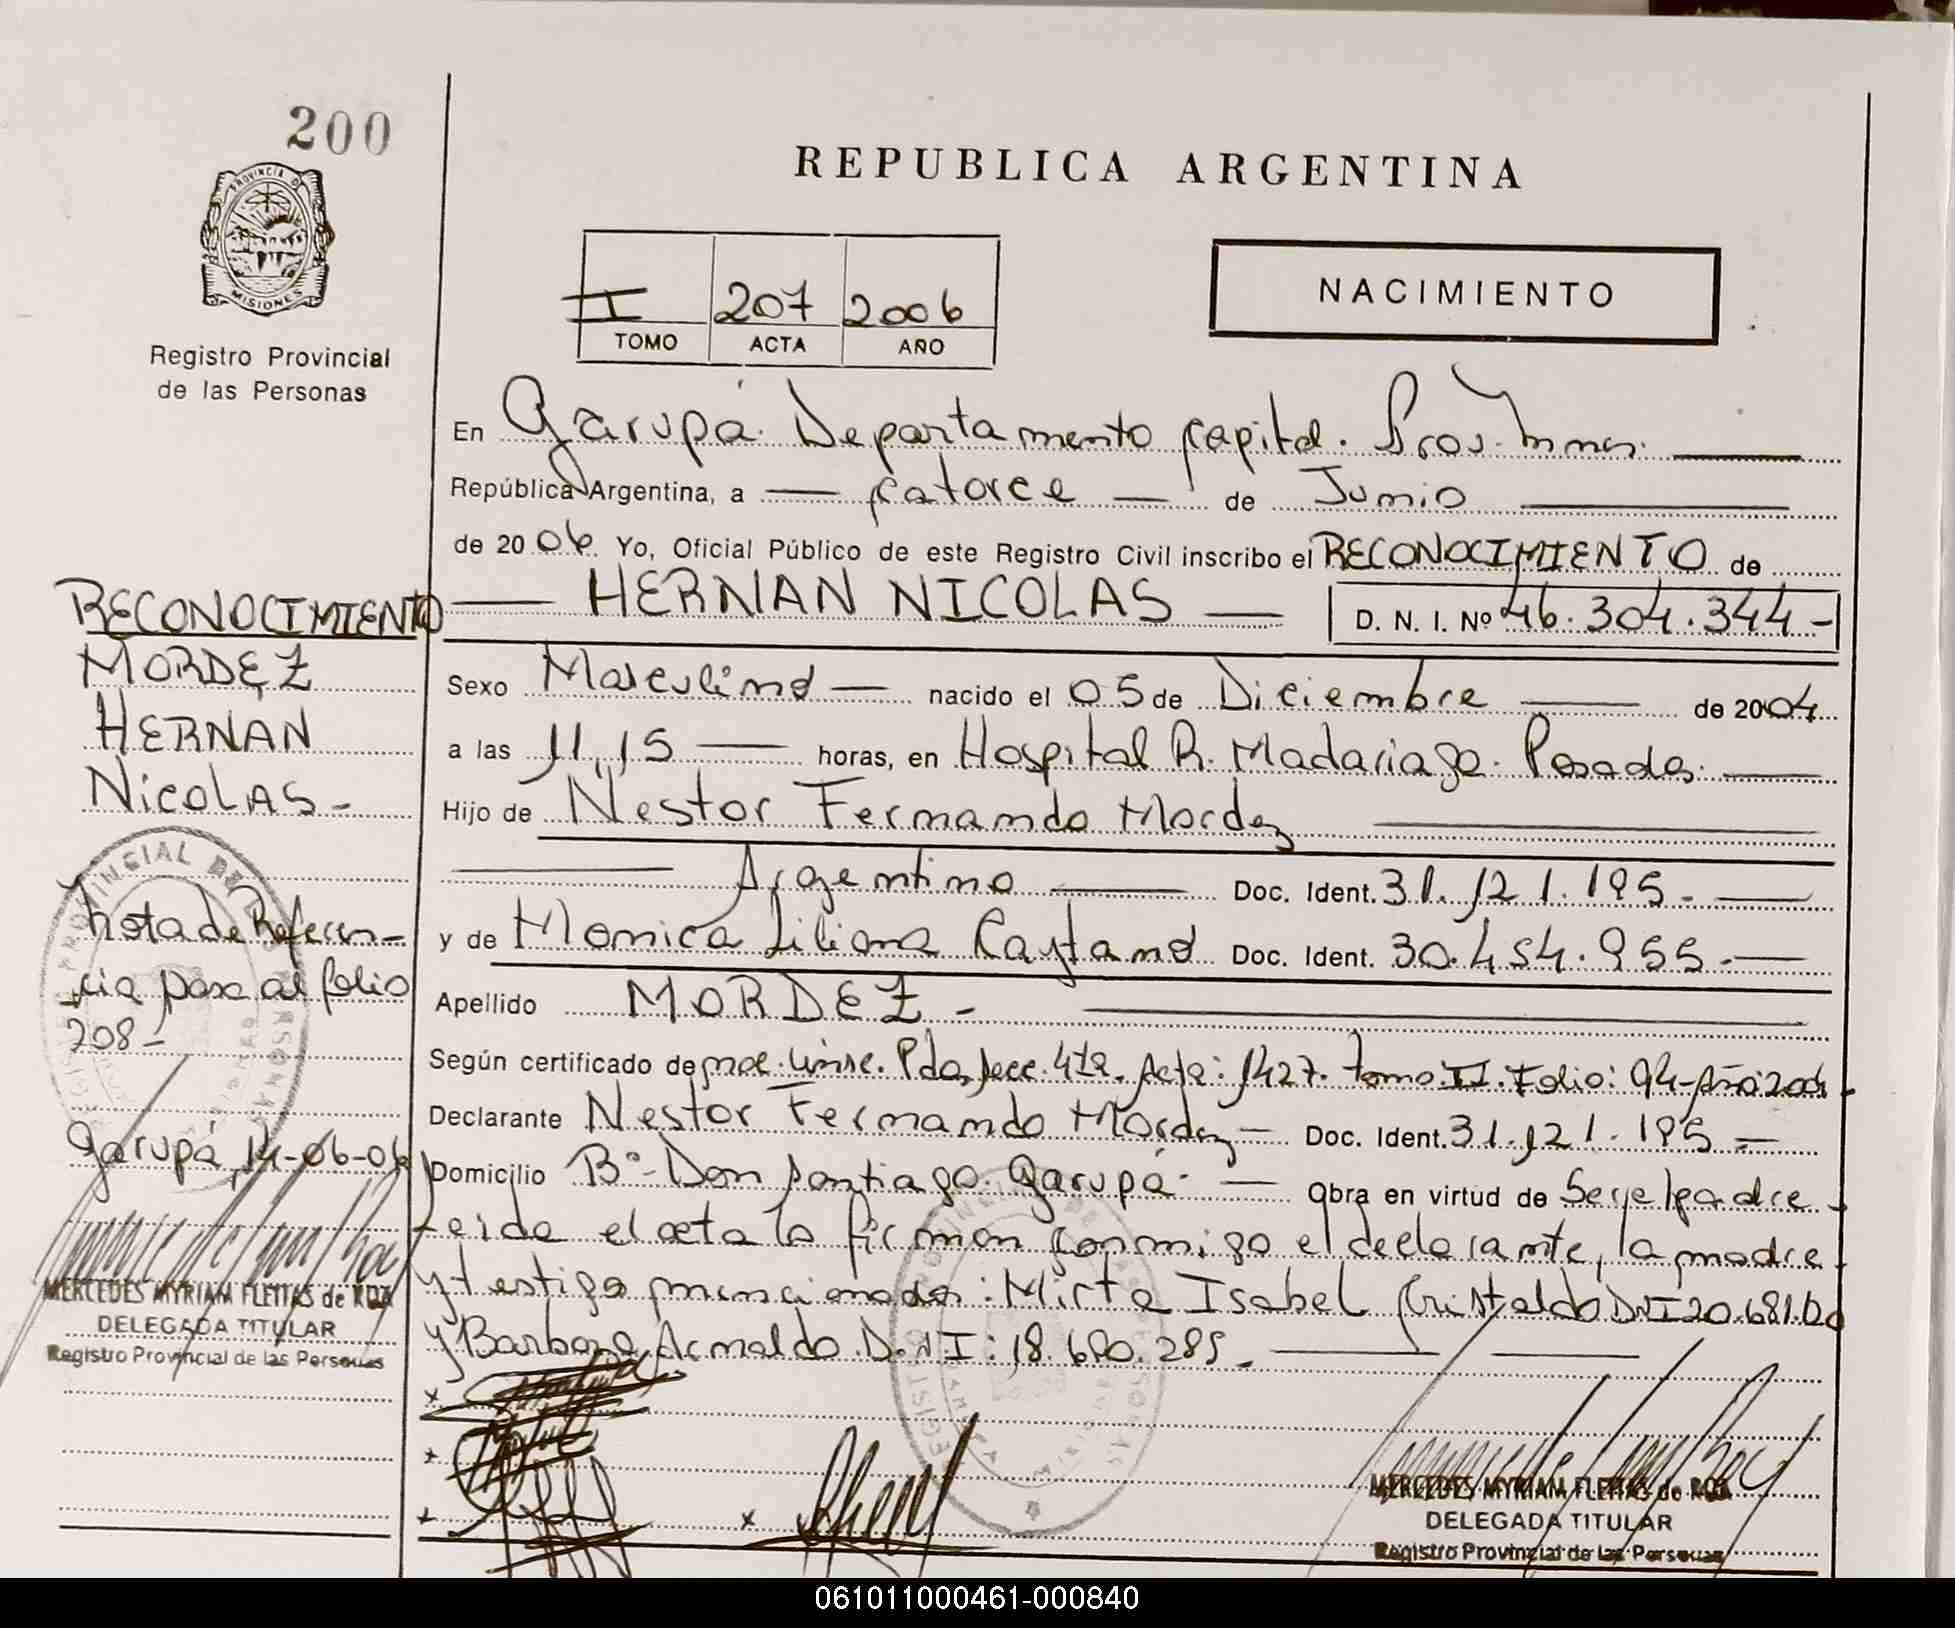 200
REPUBLICA ARGENTINA
PROVINCIA D
MISIONES
Registro Provincial
de las Personas
I 207 2006
TOMO ACTA AÑO
NACIMIENTO
En Garupá. Departamento Capital. Prov. Mnes.
República Argentina, a — catorce — de Junio
de 2006. Yo, Oficial Público de este Registro Civil inscribo el RECONOCIMIENTO de
HERNAN NICOLAS — D. N. I. Nº 46.304.344-
Sexo Masculino — nacido el 05 de Diciembre — de 2004
a las 11,15 — horas, en Hospital R. Madariaga. Posadas.
Hijo de Nestor Fernando Mordez
Argentino — Doc. Ident. 31.121.195.-
y de Monica Liliana Caytano Doc. Ident. 30.454.955.-
Apellido MORDEZ-
Según certificado de Pdas, Secc. 4ta. Acta: 1427. Tomo: II. Folio: 94-Año: 2004
Declarante Nestor Fernando Mordez — Doc. Ident. 31.121.195.-
Domicilio Bº-Don Santiago. Garupá. — Obra en virtud de Ser el padre
Leida el acta la firman conmigo el declarante, la madre
y testigo mencionados: Mirta Isabel Cristaldo DNI 20.681.
y Barboza Arnaldo D.N.I: 18.680.285.
RECONOCIMIENTO
MORDEZ
HERNAN
NICOLAS-
Nota de Referen-
cia pasa al folio
208-
Garupá, 14-06-06
MERCEDES MYRIAM FLEITAS de ROA
DELEGADA TITULAR
Registro Provincial de las Personas
MERCEDES MYRIAM FLEITAS de ROA
DELEGADA TITULAR
Registro Provincial de las Personas
061011000461-000840